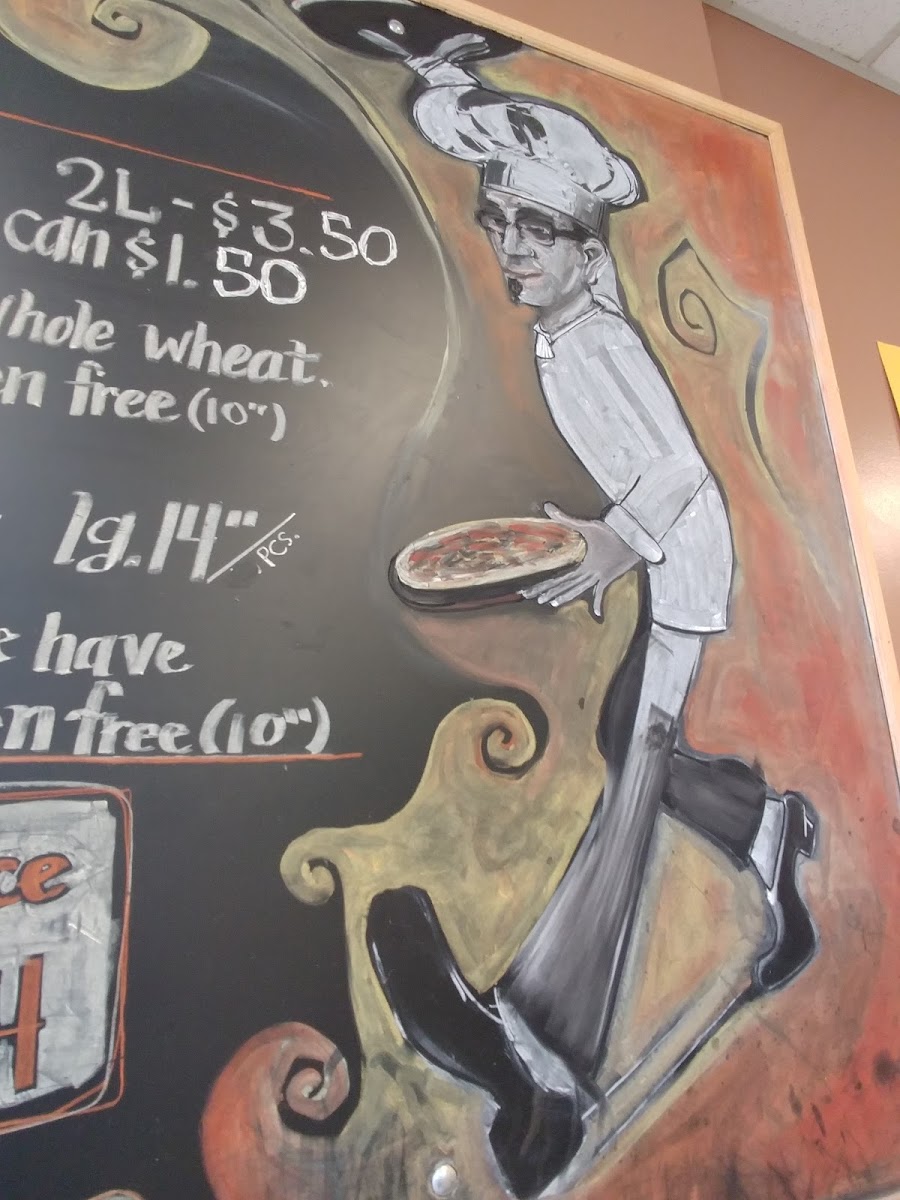 2L - $3.50
can $1.50
whole wheat.
en free (10")
lg. 14" / PCS.
e have
en free (10")
ce
H